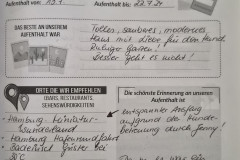 Aufenthalt von:
Aufenthalt bis: 22.7.21
DAS BESTE AN UNSEREM
AUFENTHALT WAR
Tolles, sauberes, modernes
Haus mit Liebe für den Hund
Ruhiger Garten!
Besser geht es nicht!
ORTE DIE WIR EMPFEHLEN
(BARS, RESTAURANTS,
SEHENSWÜRDIGKEITEN)
Hamburg Miniatur-
wunderland
Hamburg Hafenrundfahrt
Die schönste Erinnerung an unseren
Aufenthalt ist
entspannter Ausflug
aufgrund der Hunde-
betreuung durch Jenny!